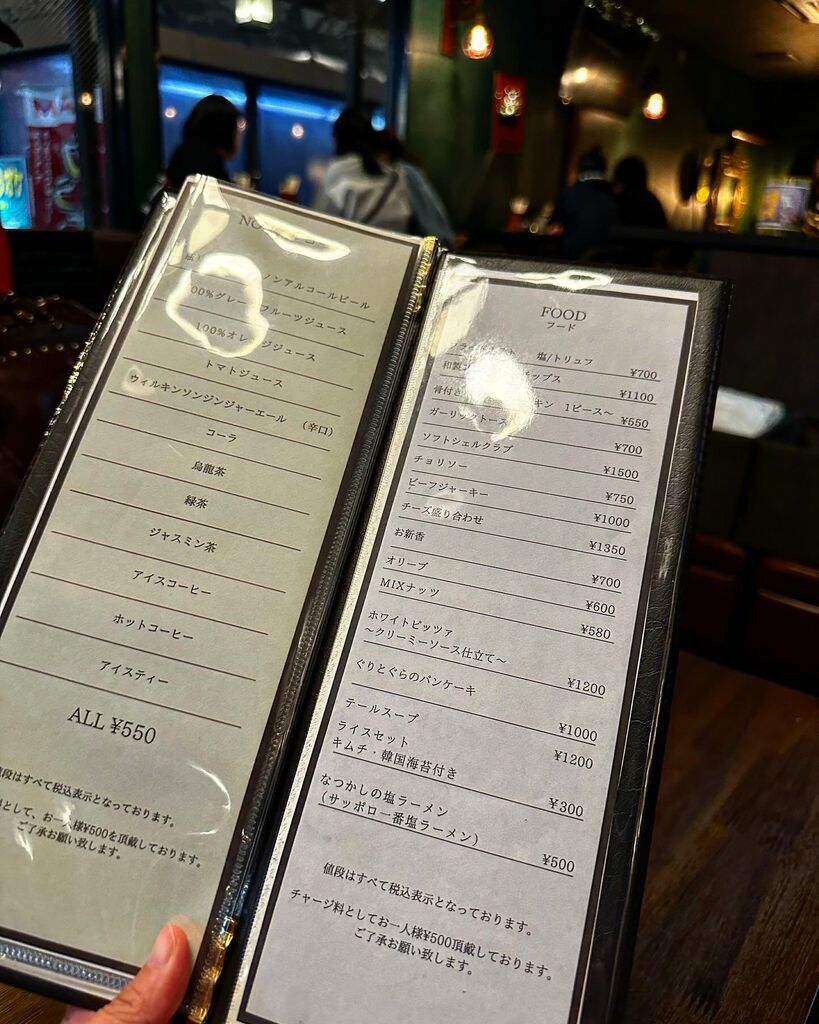 ノンアルコールビール
100%グレープフルーツジュース
100%オレンジジュース
トマトジュース
ウィルキンソンジンジャーエール (辛口)
コーラ
烏龍茶
緑茶
ジャスミン茶
アイスコーヒー
ホットコーヒー
アイスティー
ALL ¥550
値段はすべて税込表示となっております。
料として、お一人様¥500を頂戴しております。
ご了承お願い致します。
FOOD
フード
塩/トリュフ ¥700
チップス ¥1100
骨付き キン 1ピース〜 ¥550
ガーリックトースト ¥700
ソフトシェルクラブ ¥1500
チョリソー ¥750
ビーフジャーキー ¥1000
チーズ盛り合わせ ¥1350
お新香 ¥700
オリーブ ¥600
MIXナッツ ¥580
ホワイトピッツァ
〜クリーミーソース仕立て〜 ¥1200
ぐりとぐらのパンケーキ ¥1000
テールスープ ¥1200
ライスセット
キムチ・韓国海苔付き ¥300
なつかしの塩ラーメン
(サッポロ一番塩ラーメン) ¥500
値段はすべて税込表示となっております。
チャージ料としてお一人様¥500頂戴しております。
ご了承お願い致します。